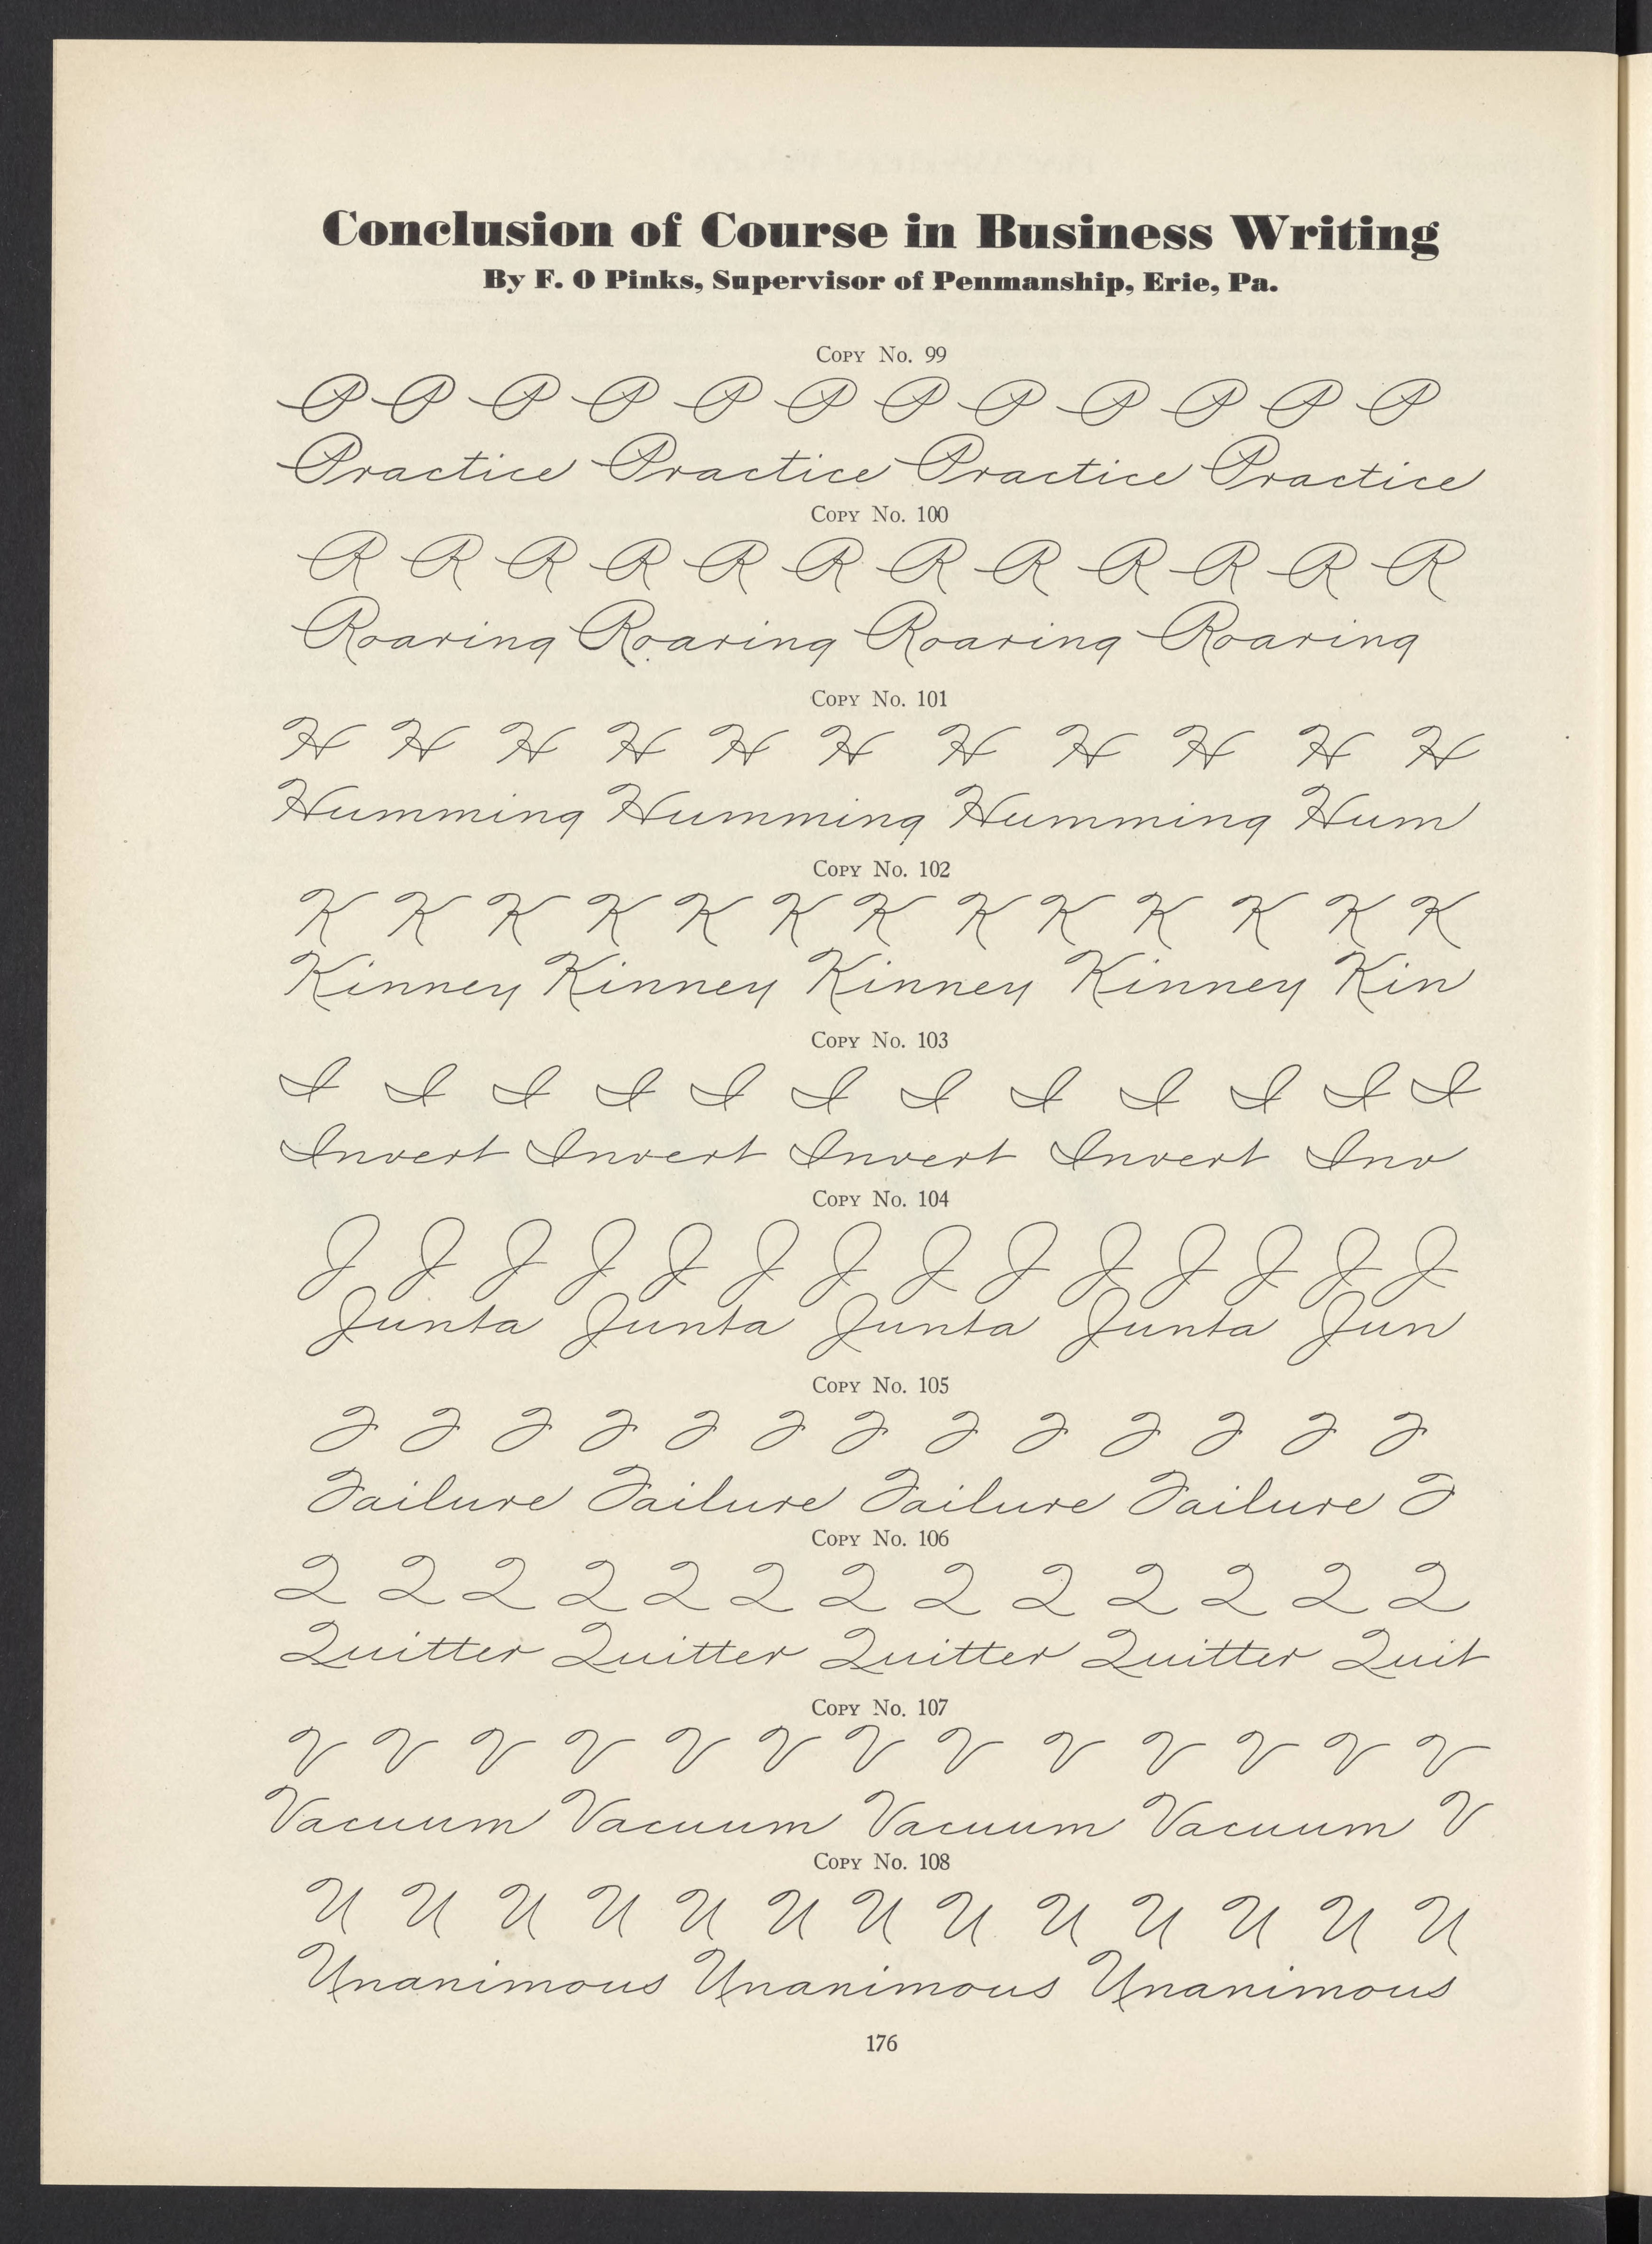 Conclusion of Course in Business Writing
By F. O Pinks, Supervisor of Penmanship, Erie, Pa.
Copy No. 99
P P P P P P P P P P P P
Practice Practice Practice Practice
Copy No. 100
R R R R R R R R R R R R
Roaring Roaring Roaring Roaring
Copy No. 101
H H H H H H H H H H H
Humming Humming Humming Hum
Copy No. 102
K K K K K K K K K K K K K
Kinney Kinney Kinney Kinney Kin
Copy No. 103
I I I I I I I I I I I I
Invert Invert Invert Invert Inv
Copy No. 104
J J J J J J J J J J J J J J
Junta Junta Junta Junta Jun
Copy No. 105
F F F F F F F F F F F F F
Failure Failure Failure Failure F
Copy No. 106
Q Q Q Q Q Q Q Q Q Q Q Q Q
Quitter Quitter Quitter Quitter Quit
Copy No. 107
V V V V V V V V V V V V V
Vacuum Vacuum Vacuum Vacuum V
Copy No. 108
U U U U U U U U U U U U U
Unanimous Unanimous Unanimous
176